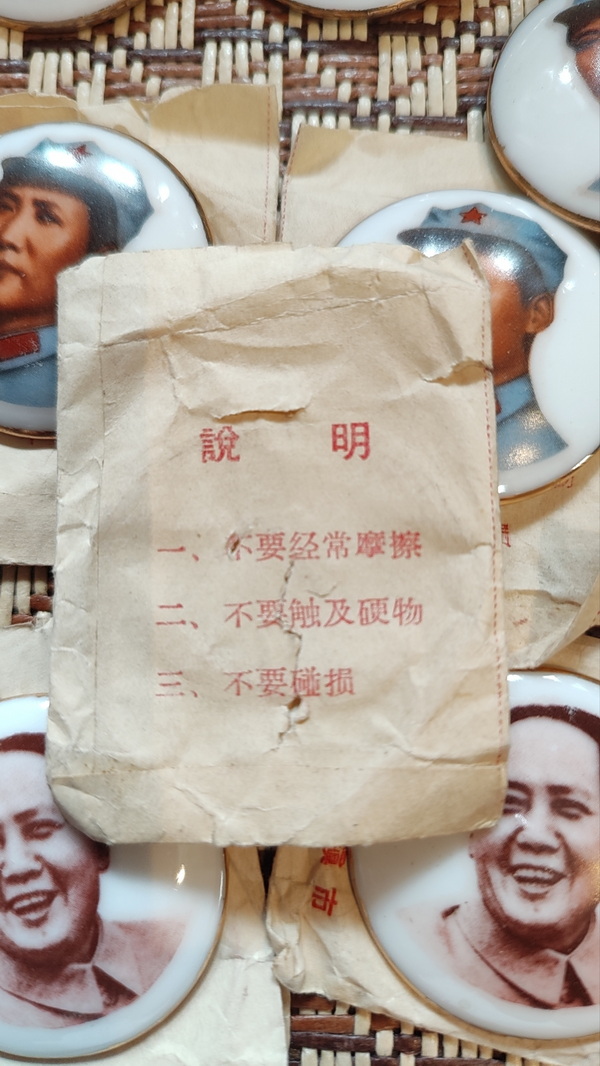 說明
一、不要经常摩擦
二、不要触及硬物
三、不要碰损
市